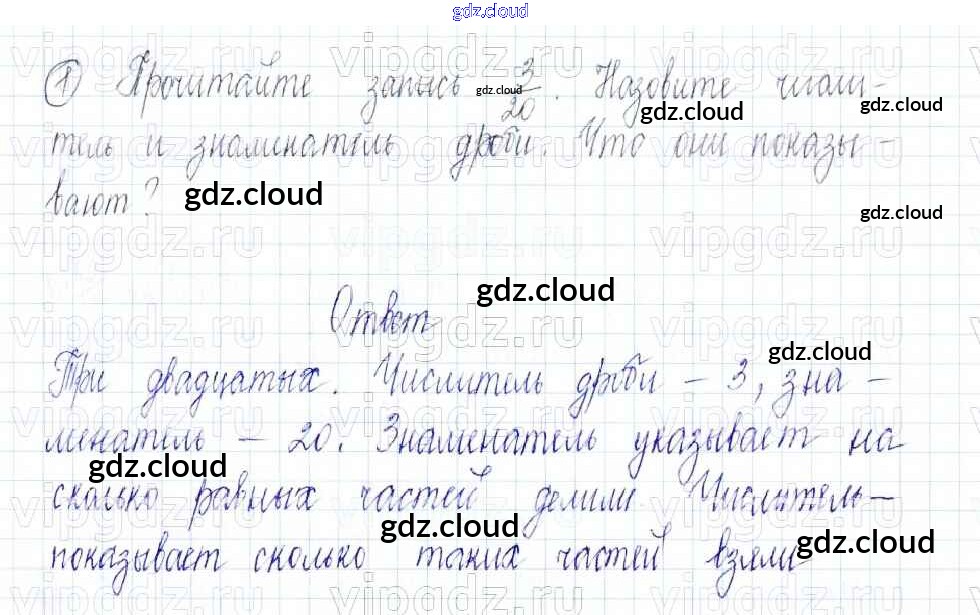 gdz.cloud
① Прочитайте запись 3/20. Назовите числи-
тель и знаменатель дроби. Что они показы-
вают?
Ответ
Три двадцатых. Числитель дроби – 3, зна-
менатель – 20. Знаменатель указывает на
сколько равных частей делили. Числитель–
показывает сколько таких частей взяли
gdz.cloud
gdz.cloud
gdz.cloud
gdz.cloud
gdz.cloud
gdz.cloud
gdz.cloud
gdz.cloud
gdz.cloud
gdz.cloud
vipgdz.ru